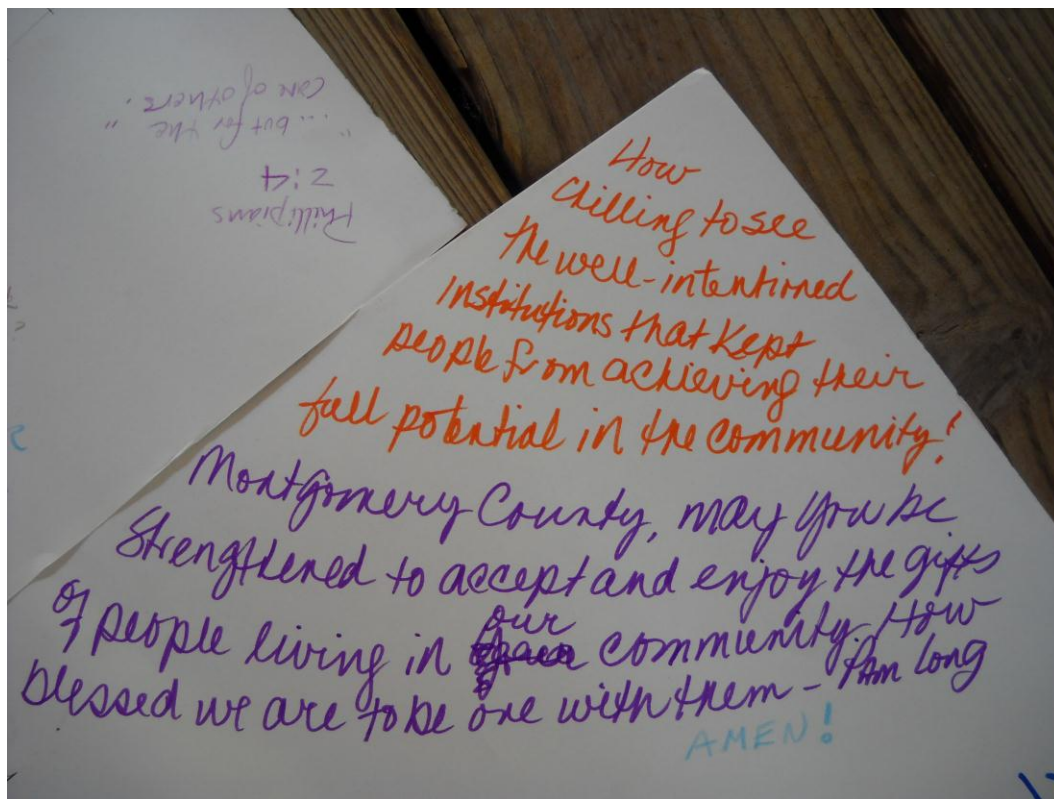 Phillipians
2:4
"... but for the "
care of others.
How
Chilling to see
the well-intentioned
institutions that kept
people from achieving their
full potential in the community!
Montgomery County, may you be
strengthened to accept and enjoy the gifts
of people living in our community. How
blessed we are to be one with them - Pam Long
AMEN!